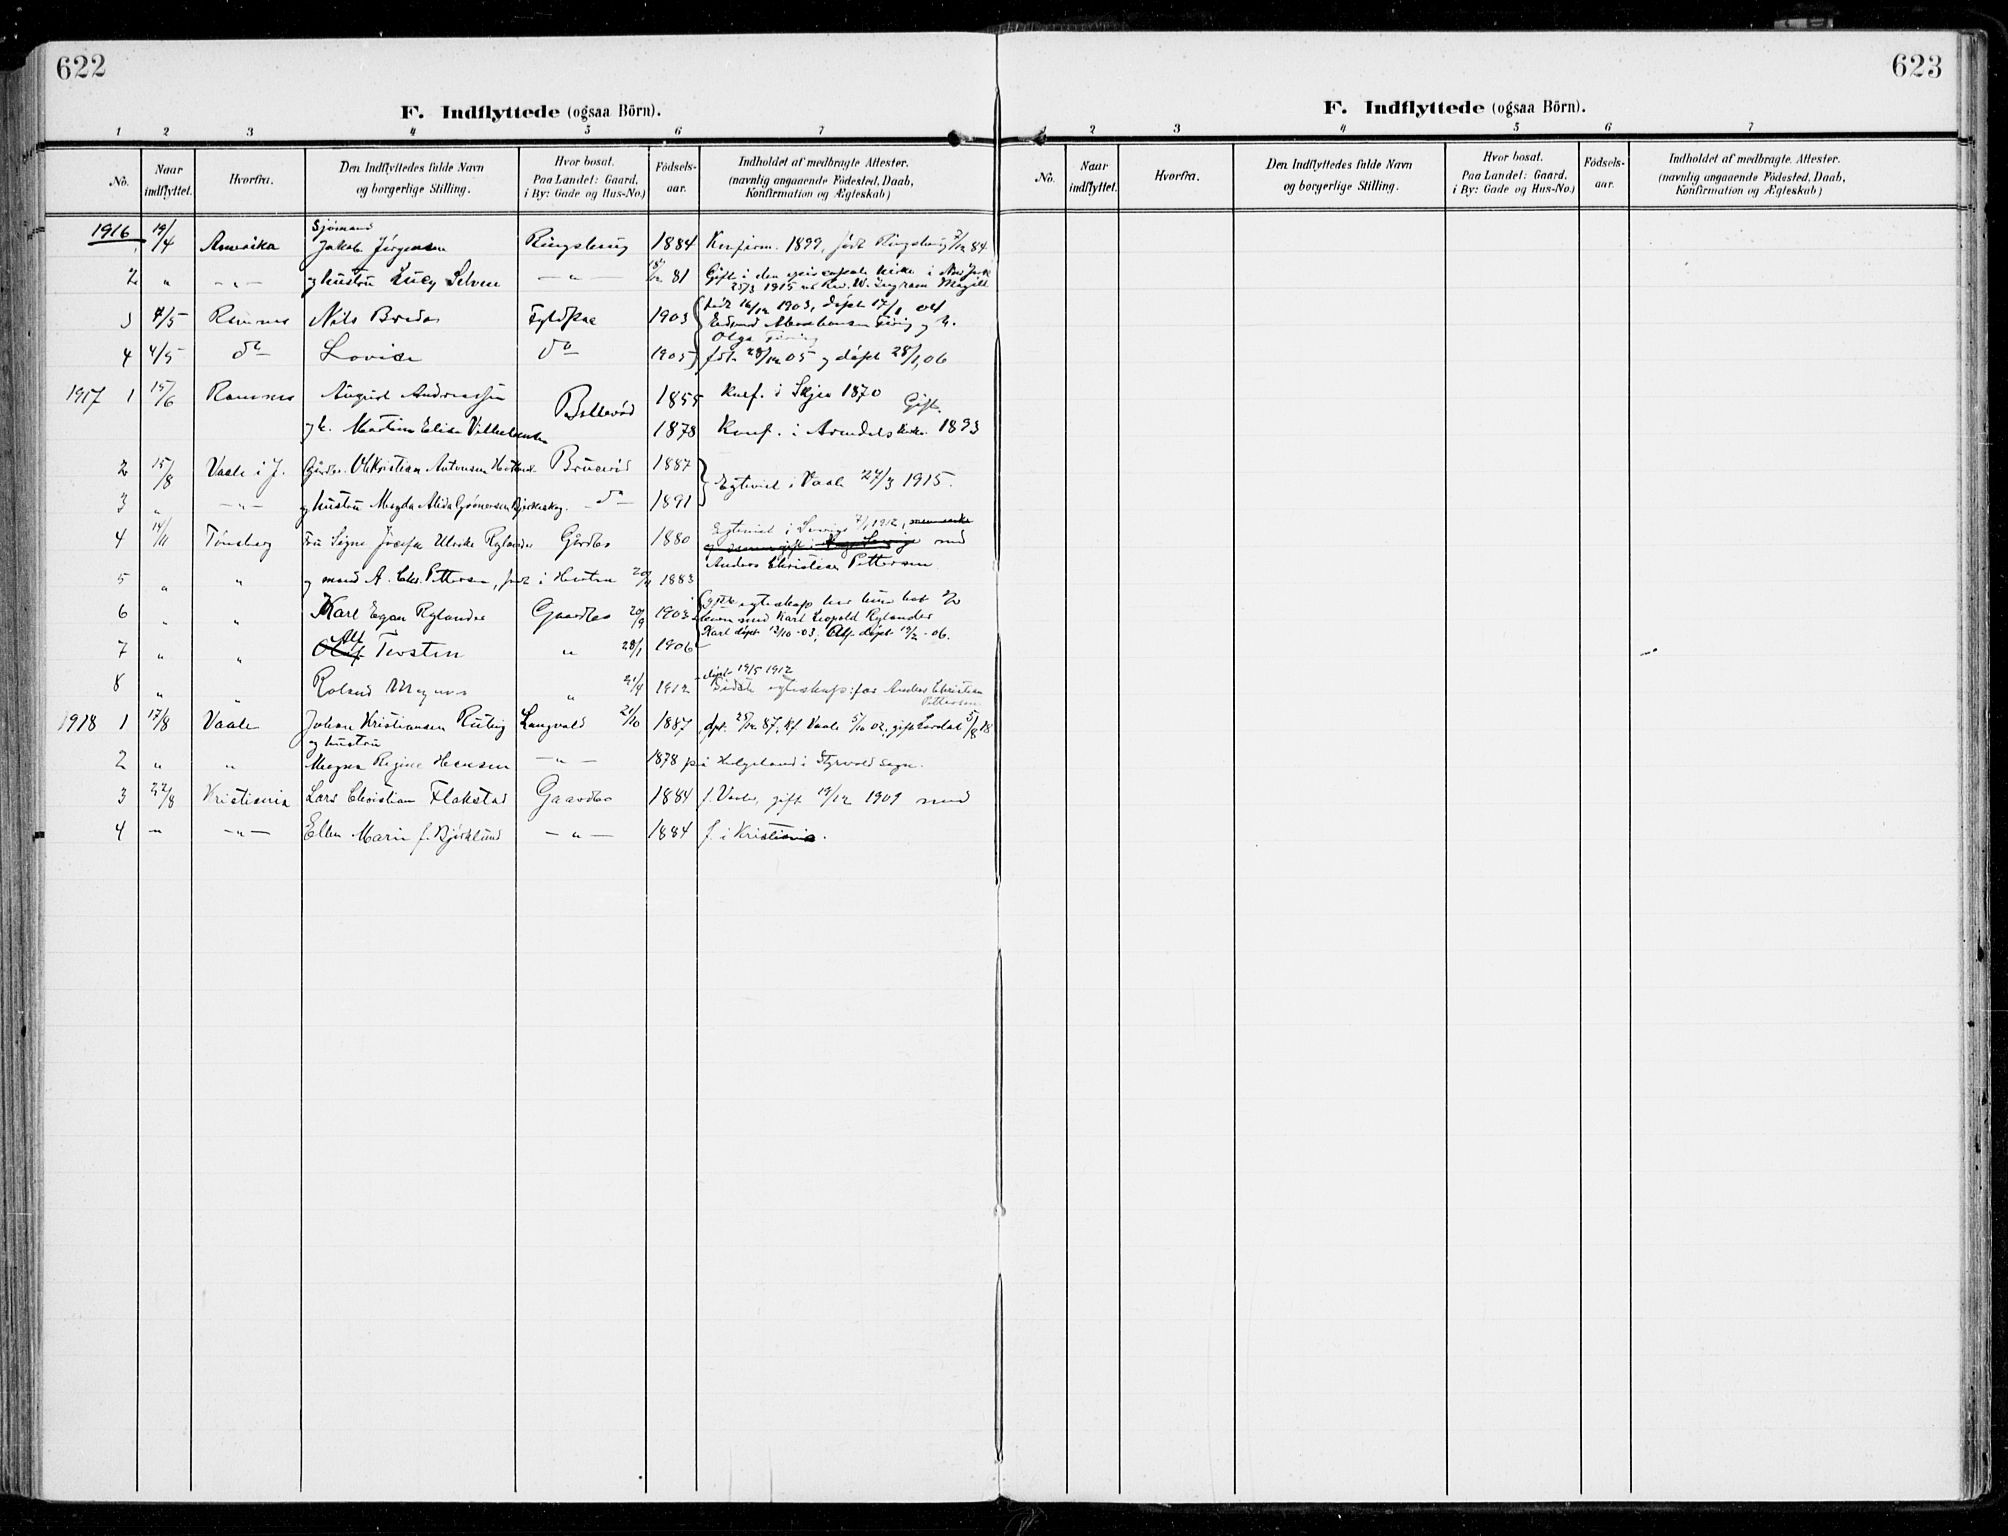 622
F. Indflyttede (ogsaa Börn).
1 2 3 4 5 6 7
No. Naar indflyttet. Hvorfra. Den Indflyttedes fulde Navn og borgerlige Stilling. Hvor bosat. Paa Landet: Gaard, i By: Gade og Hus-No.) Fødsels-aar. Indholdet af medbragte Attester. (navnlig angaaende Födested, Daab, Konfirmation og Ægteskab)
1916 19/4 Amerika Sjømand Jakob Jørgensen Ringshaug 1884 Konfirm. 1899, født Ringshaug 7/12 84.
2 " — " — og hustru Lucy Selven — " — 81 Gift i den episcopale kirke i New York
25/3 1915 Rev. W. Ingram Magill
3 4/5 Ramnes Nils Bredo Fyldpaa 1903 født 16/12 1903, døpt 17/1 04
Edvard Abrahamsen og h.
Olga
4 4/5 do Lovise do 1905 født 28/12 05 og døpt 28/1 06
1917 1 15/6 Ramnes August Andreassen 1855 Konf. i Skjee 1870
og h. Martine Elise Vilhelmsen 1878 Konf. i Arendals kirke. Gift 1893
2 15/8 Vaale i J. Gårdbr. Ole Kristian Antonsen Bruserød 1887
3 " — " — og hustru Magda Alida Grønersen do 1891 Egteviet i Vaale 27/3 1915.
4 14/11 Tønsberg Fru Signe Josefa Ulrike Rylander Gårdbo 1880 Egteviet i Sverige 7/1 1912, med
Anders Christian Pettersen
5 " " og mand A. Chr. Pettersen, født i Horten 20/11 1883
6 " " Karl Egon Rylander Gaardbo 20/9 1903 egteskap har hun hat 2
med Karl Leopold Rylander
Karl døpt 13/10 - 03, Alf døpt 19/2 - 06.
7 " " Alf Torsten " 28/1 1906
8 " " Roland Magnus " 21/4 1912 døpt 19/5 1912
Sidste egteskap: far Anders Christian
Pettersen
1918 1 17/8 Vaale Johan Kristiansen Langvald 21/10 1887 døpt. 26/12 87, kf. Vaale 5/10 02, gift Lardal 5/8 18
og hustru
2 " " Magna Regine Hansen — " — 1878 på Helgeland i Styrvold sogn.
3 22/8 Kristiania Lars Christian Flakstad Gaardbo 1884 f. Vaale, gift 19/12 1909 med
4 — — " — Ellen Marie f. Bjørklund — " — 1884 f. i Kristiania.
623
F. Indflyttede (ogsaa Börn).
1 2 3 4 5 6 7
No. Naar indflyttet. Hvorfra. Den Indflyttedes fulde Navn og borgerlige Stilling. Hvor bosat. Paa Landet: Gaard, i By: Gade og Hus-No.) Fødsels-aar. Indholdet af medbragte Attester. (navnlig angaaende Födested, Daab, Konfirmation og Ægteskab)